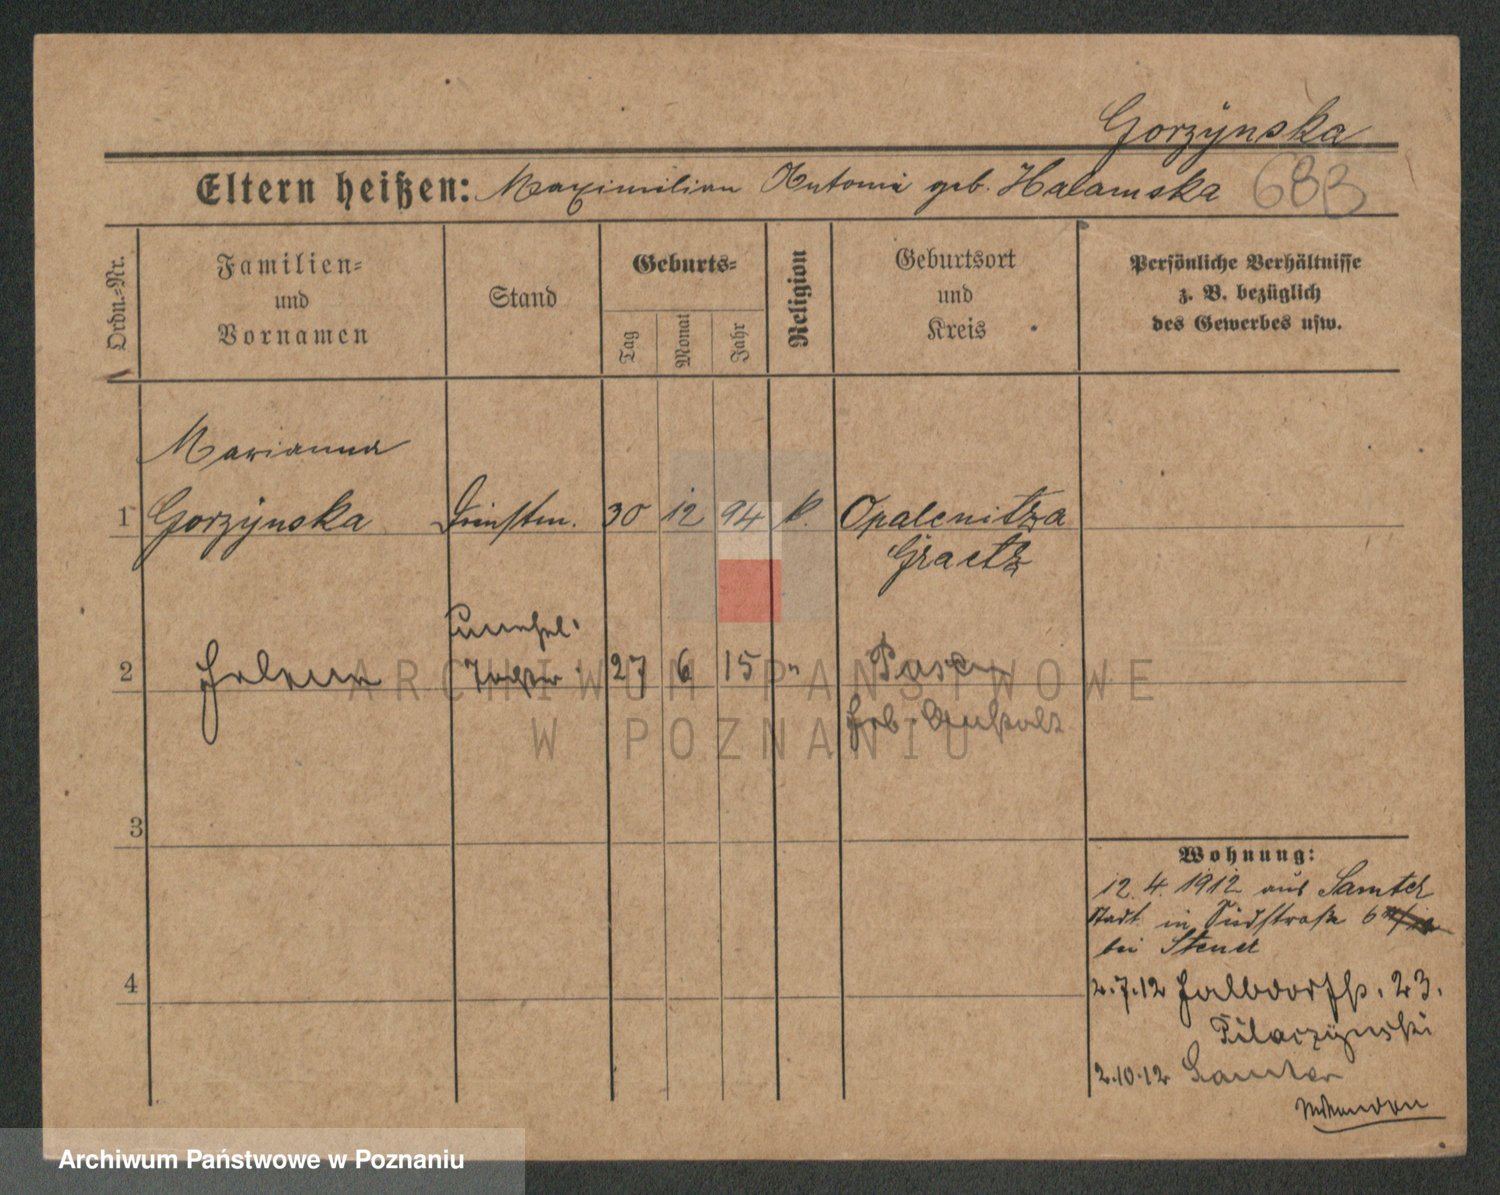 Gorzÿnska
Eltern heißen: Maximilian Antonie geb. Halamska 683
Ordn.-Nr.
Familien-
und
Vornamen
Stand
Geburts-
Tag
Monat
Jahr
Religion
Geburtsort
und
Kreis
Persönliche Verhältnisse
z. B. bezüglich
des Gewerbes usw.
Marianna
1 Gorzÿnska Dienstm. 30 12 94 k. Opalenitza
Graetz
unehel.
2 Helene Tochter 27 6 15 " Posen
3
4
Wohnung:
12. 4. 1912 aus Samter
Stadt in Südstraße 6
bei Stener
2.7.12 Halbdorfstr. 23.
Pilaczynski
2.10.12 Samter
ARCHIWUM PAŃSTWOWE
W POZNANIU
Archiwum Państwowe w Poznaniu